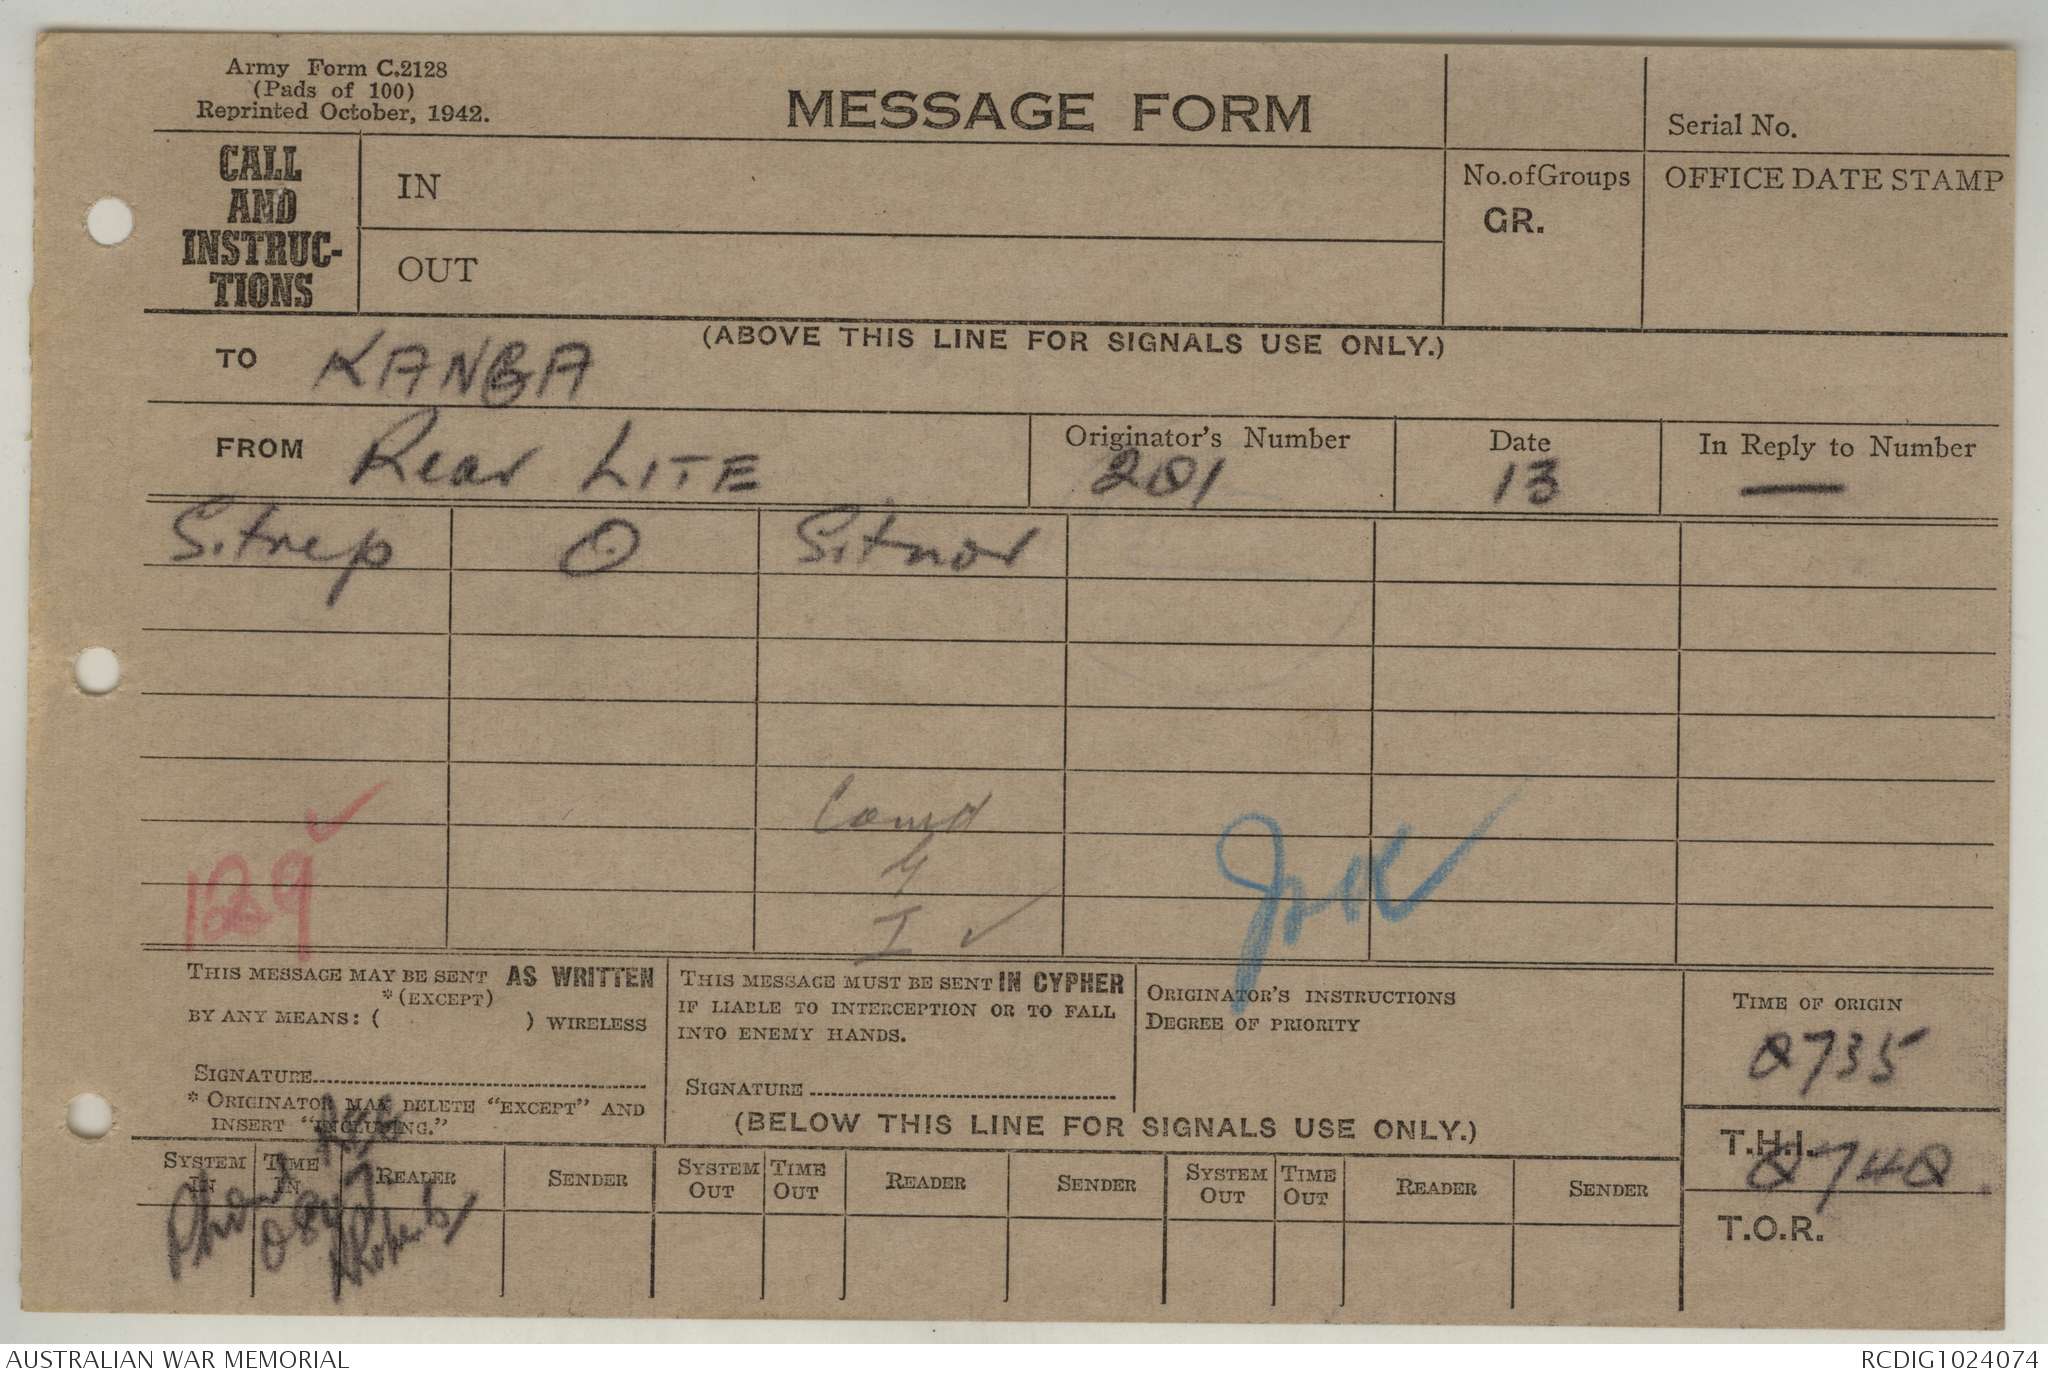 Army Form C.2128
(Pads of 100)
Reprinted October, 1942.
MESSAGE FORM
Serial No.
CALL
AND
INSTRUC-
TIONS
IN
OUT
No.of Groups
GR.
OFFICE DATE STAMP
(ABOVE THIS LINE FOR SIGNALS USE ONLY.)
TO KANGA
FROM Rear LITE
Originator's Number
201
Date
13
In Reply to Number
—
Sitrep O Sitnor
Comd
I ✓
129 ✓
THIS MESSAGE MAY BE SENT AS WRITTEN
*(EXCEPT)
BY ANY MEANS: ( ) WIRELESS
SIGNATURE
* ORIGINATOR MAY DELETE "EXCEPT" AND
INSERT "INCLUDING."
THIS MESSAGE MUST BE SENT IN CYPHER
IF LIABLE TO INTERCEPTION OR TO FALL
INTO ENEMY HANDS.
SIGNATURE
ORIGINATOR'S INSTRUCTIONS
DEGREE OF PRIORITY
TIME OF ORIGIN
0735
(BELOW THIS LINE FOR SIGNALS USE ONLY.)
T.H.I.
0740
T.O.R.
SYSTEM IN
TIME IN
READER
SENDER
SYSTEM OUT
TIME OUT
READER
SENDER
SYSTEM OUT
TIME OUT
READER
SENDER
Phoned
Roberts
AUSTRALIAN WAR MEMORIAL
RCDIG1024074